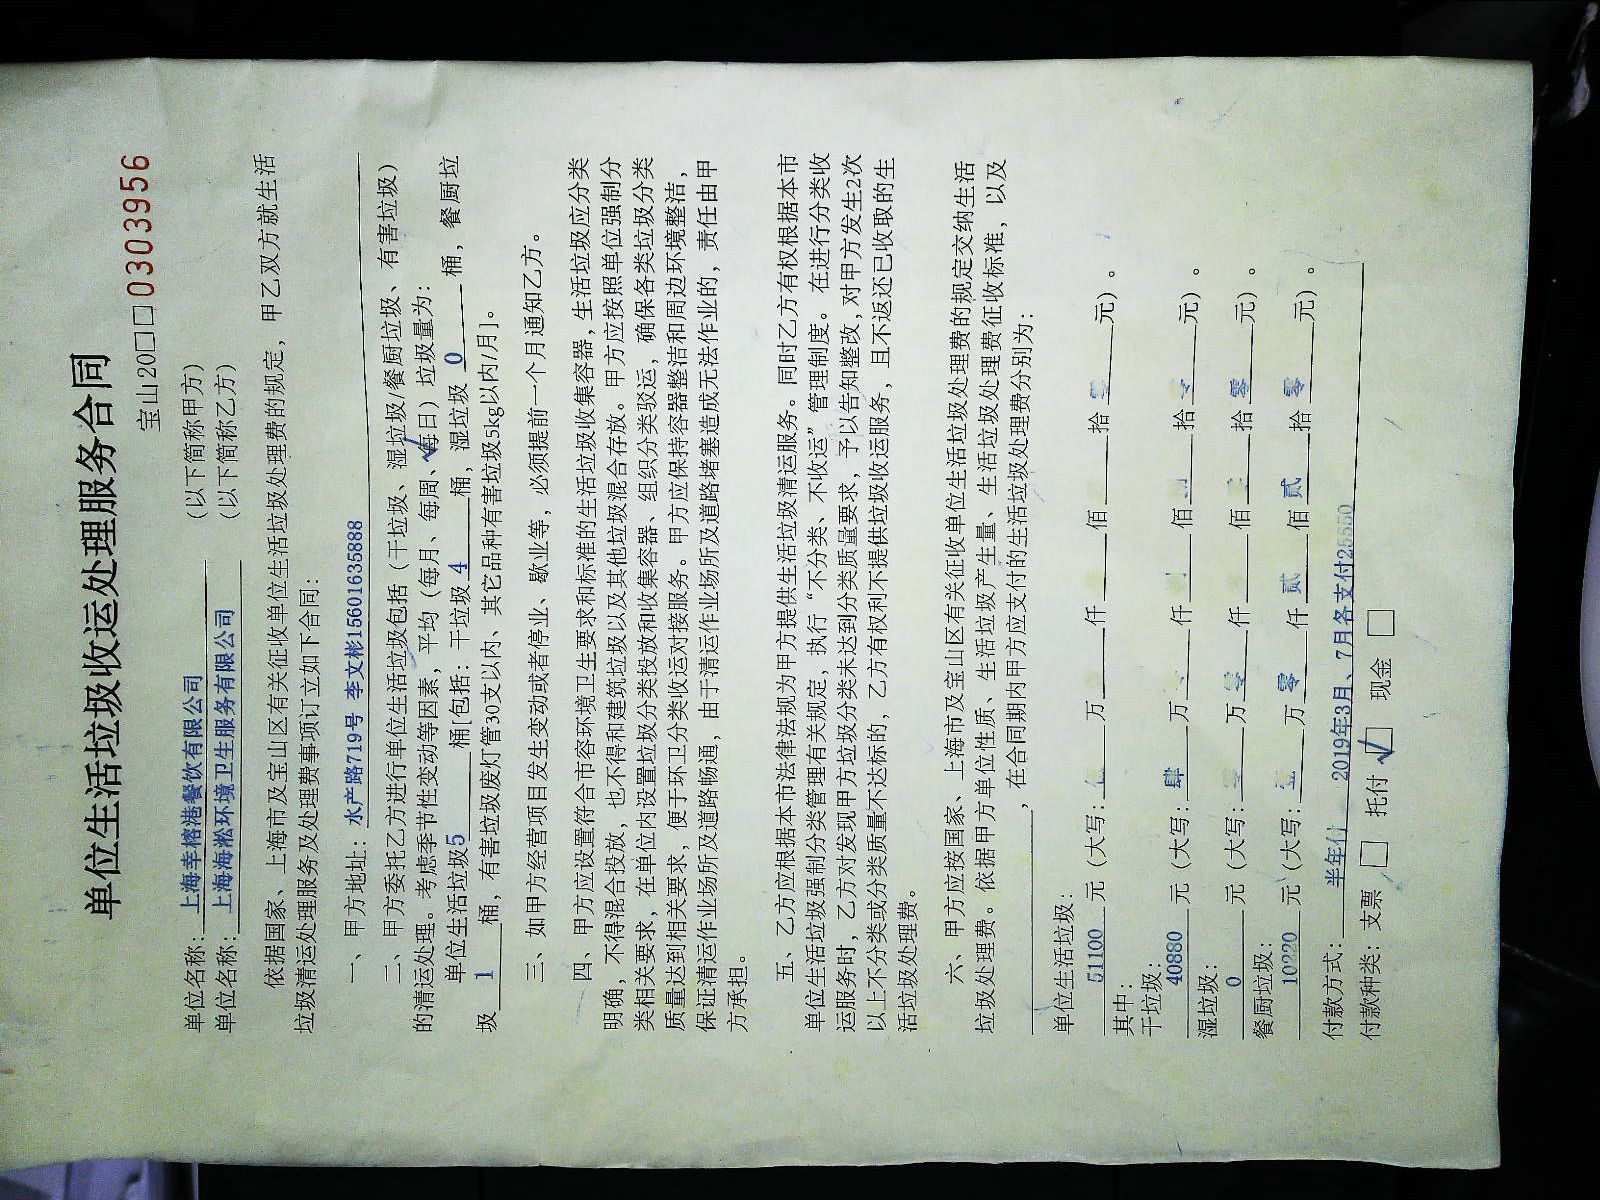 单位生活垃圾收运处理服务合同
宝山20□□0303956
单位名称：上海幸榕港餐饮有限公司（以下简称甲方）
单位名称：上海海淞环境卫生服务有限公司（以下简称乙方）
依据国家、上海市及宝山区有关征收单位生活垃圾处理费的规定，甲乙双方就生活
垃圾清运处理服务及处理费事项订立如下合同：
一、甲方地址：水产路719号 李文彬15601635888
二、甲方委托乙方进行单位生活垃圾包括（干垃圾、湿垃圾/餐厨垃圾、有害垃圾）
的清运处理。考虑季节性变动等因素，平均（每月、每周、每日）垃圾量为：
单位生活垃圾5 桶[包括：干垃圾 4 桶，湿垃圾 0 桶，餐厨垃
圾 1 桶，有害垃圾废灯管30支以内、其它品种有害垃圾5kg以内/月]。
三、如甲方经营项目发生变动或者停业、歇业等，必须提前一个月通知乙方。
四、甲方应设置符合市容环境卫生要求和标准的生活垃圾收集容器，生活垃圾应分类
明确，不得混合投放，也不得和建筑垃圾以及其他垃圾混合存放。甲方应按照单位强制分
类相关要求，在单位内设置垃圾分类投放和收集容器、组织分类驳运，确保各类垃圾分类
质量达到相关要求，便于环卫分类收运对接服务。甲方应保持容器整洁和周边环境整洁，
保证清运作业场所及道路畅通，由于清运作业场所及道路堵塞造成无法作业的，责任由甲
方承担。
五、乙方应根据本市法律法规为甲方提供生活垃圾清运服务。同时乙方有权根据本市
单位生活垃圾强制分类管理有关规定，执行“不分类、不收运”管理制度。在进行分类收
运服务时，乙方对发现甲方垃圾分类未达到分类质量要求，予以告知整改，对甲方发生2次
以上不分类或分类质量不达标的，乙方有权利不提供垃圾收运服务，且不返还已收取的生
活垃圾处理费。
六、甲方应按国家、上海市及宝山区有关征收单位生活垃圾处理费的规定交纳生活
垃圾处理费。依据甲方单位性质、生活垃圾产生量、生活垃圾处理费征收标准，以及
，在合同期内甲方应支付的生活垃圾处理费分别为：
单位生活垃圾：
51100 元（大写： 万 仟 佰 拾 元）。
其中：
干垃圾：
40880 元（大写：肆 万 仟 佰 拾 元）。
湿垃圾：
0 元（大写： 万 零 仟 佰 拾 零 元）。
餐厨垃圾：
10220 元（大写： 万 零 仟 贰 佰 贰 拾 零 元）。
付款方式：半年付 2019年3月、7月各支付25550
付款种类：支票 □ 托付 ☑ 现金 □